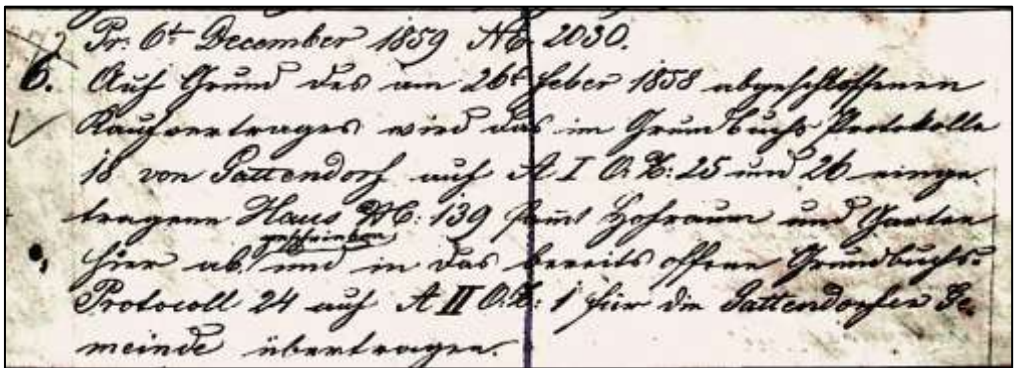 Pr: 6t December 1859 No 2030.
6. Auf Grund des am 26t feber 1858 abgeschlossenen
Kaufvertrages wird das im Grundbuchs Protokolle
18 von Gattendorf auf A I O. Z: 25 und 26 einge
tragene Haus No: 139 samt Hofraum und Garten
geschrieben
hier ab, und in das bereits offene Grundbuchs=
Protocoll 24 auf A II O. Z: 1 für die Gattendorfer Ge,
meinde übertragen.